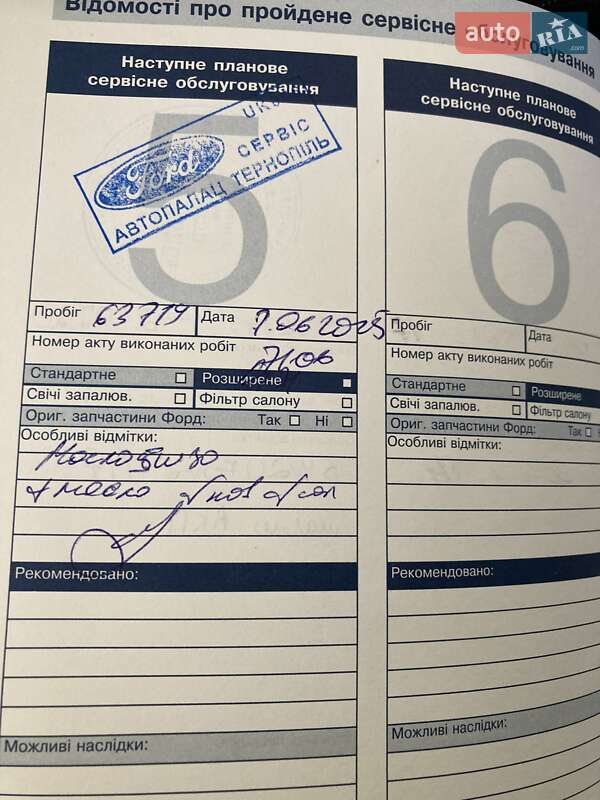 Відомості про пройдене сервісне обслуговування
auto RIA .com
Наступне планове
сервісне обслуговування
5
Ford
СЕРВІС
АВТОПАЛАЦ ТЕРНОПІЛЬ
Пробіг 63719 Дата 7.06 2025
Номер акту виконаних робіт
Стандартне Розширене
Свічі запалюв. Фільтр салону
Ориг. запчастини Форд: Так Ні
Особливі відмітки:
Рекомендовано:
Можливі наслідки:
Наступне планове
сервісне обслуговування
6
Пробіг Дата
Номер акту виконаних робіт
Стандартне Розширене
Свічі запалюв. Фільтр салону
Ориг. запчастини Форд: Так
Особливі відмітки:
Рекомендовано:
Можливі наслідки: